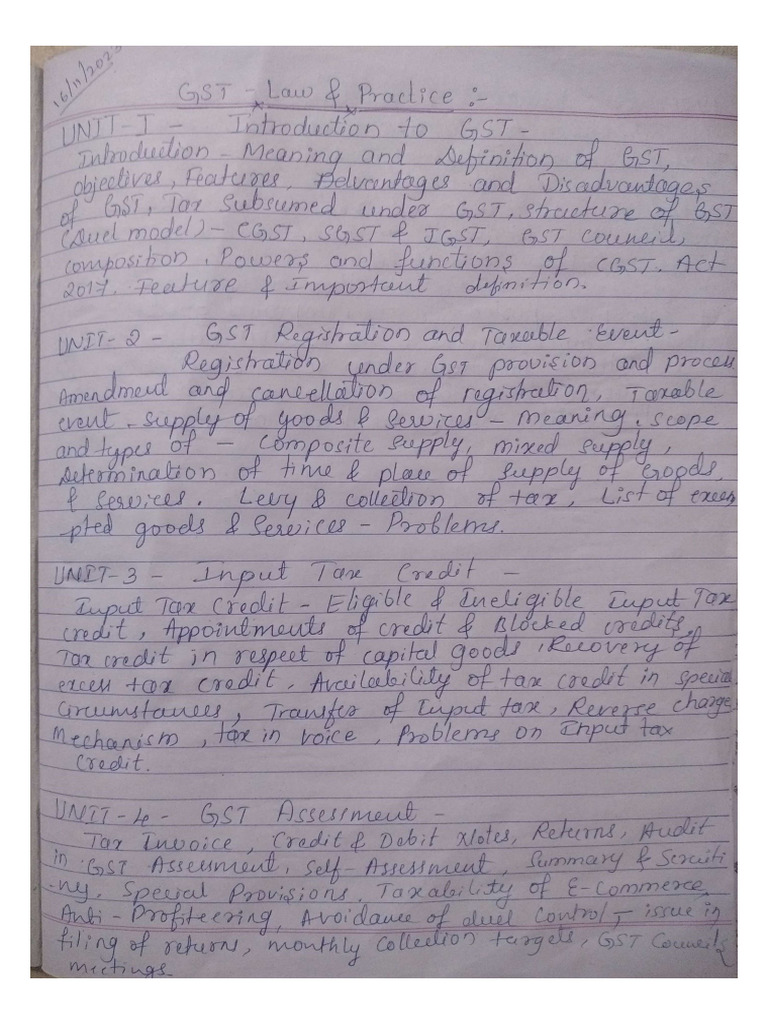 16/11/202
GST - Law & Practice :-
UNIT-I - Introduction to GST -
Introduction - Meaning and Definition of GST,
objectives, Features, Advantages and Disadvantages
of GST, Tax Subsumed under GST, structure of GST
(Duel model) - CGST, SGST & IGST, GST Council,
composition, Powers and functions of CGST. Act
2017. Feature & Important definition.
UNIT-2 - GST Registration and Taxable Event -
Registration under GST provision and process
Amendment and cancellation of registration, Taxable
event. Supply of goods & Services - Meaning, scope
and types of - Composite supply, mixed supply,
Determination of time & place of supply of Goods,
& Services. Levy & collection of tax, List of exem
-pted goods & Services - Problems.
UNIT-3 - Input Tax Credit -
Input Tax Credit - Eligible & Ineligible Input Tax
credit, Appointments of credit & Blocked credits,
Tax credit in respect of capital goods, Recovery of
excess tax credit, Availability of tax credit in special
Circumstances, Transfer of Input tax, Reverse charge
Mechanism, tax in voice, Problems on Input tax
Credit.
UNIT-4 - GST Assessment -
Tax Invoice, Credit & Debit Notes, Returns, Audit
in GST Assessment, Self-Assessment, Summary & Scruiti
-ny, Special Provisions. Taxability of E-Commerce,
Anti-Profiteering, Avoidance of duel Control - issue in
filing of returns, monthly Collection targets, GST Council
meetings.